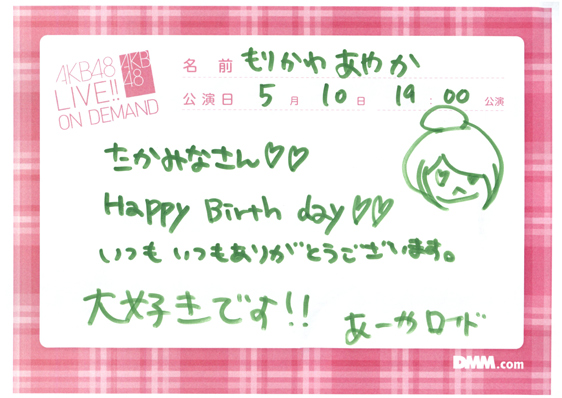 AKB48
LIVE!!
ON DEMAND
AKB
48
名前 もりかわ あやか
公演日 5月 10日 19:00 公演
たかみなさん♡♡
Happy Birth day ♡♡
いつも いつもありがとうございます。
大好きです!!
あーやロード
DMM.com